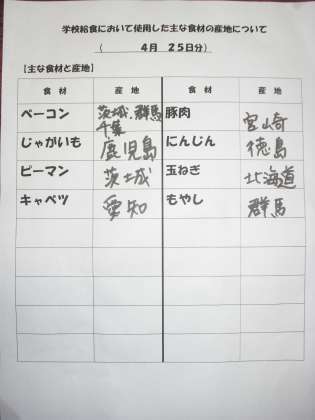 学校給食において使用した主な食材の産地について
( 4月 25日分)
【主な食材と産地】
食材 産地 食材 産地
ベーコン 茨城、群馬 千葉 豚肉 宮崎
じゃがいも 鹿児島 にんじん 徳島
ピーマン 茨城 玉ねぎ 北海道
キャベツ 愛知 もやし 群馬